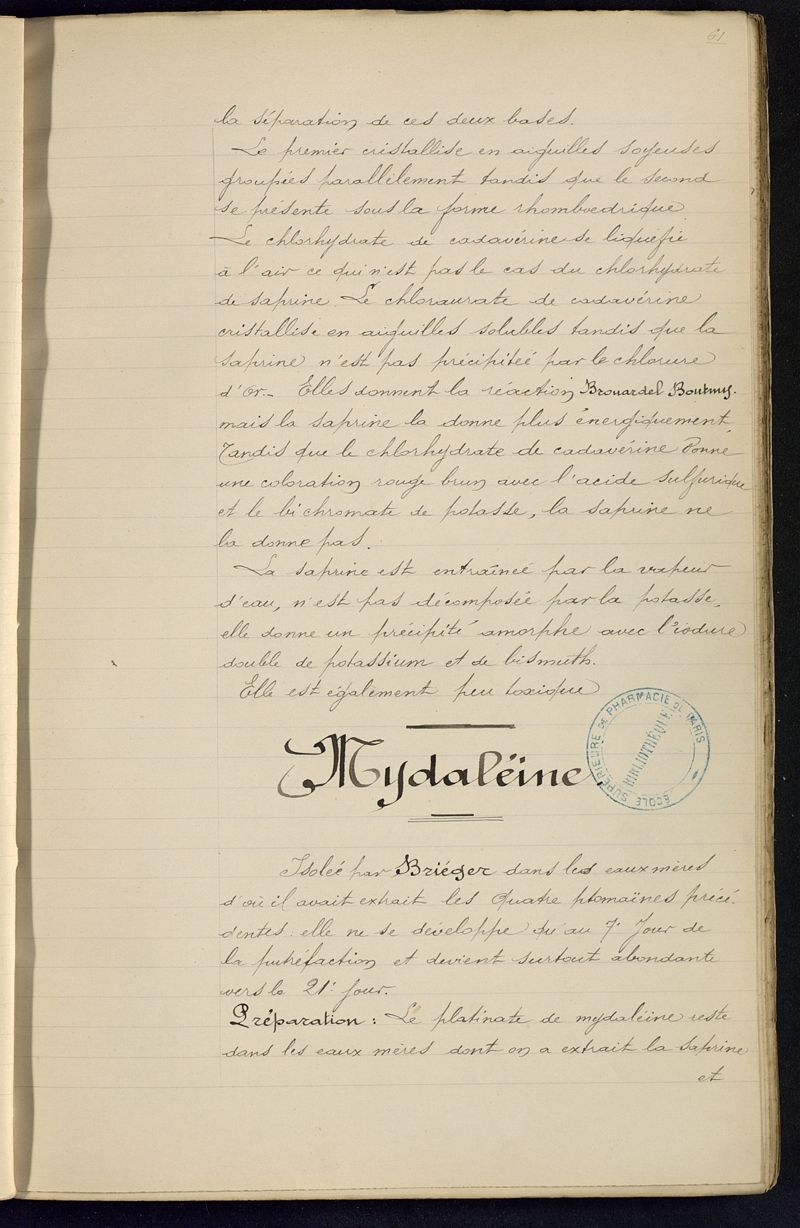 61
la séparation de ces deux bases.
Le premier cristallise en aiguilles soyeuses
groupées parallèlement tandis que le second
se présente sous la forme rhomboedrique
Le chlorhydrate de cadavérine se liquéfie
à l'air ce qui n'est pas le cas du chlorhydrate
de saprine. Le chloraurate de cadavérine
cristallise en aiguilles solubles tandis que la
saprine n'est pas précipitéé par le chlorure
d'Or.- Elles donnent la réaction Brouardel Boutmy.
mais la saprine la donne plus énergiquement
Tandis que le chlorhydrate de cadavérine donne
une coloration rouge brun avec l'acide sulfurique
et le bichromate de potasse, la saprine ne
la donne pas.
La saprine est entraînéé par la vapeur
d'eau, n'est pas décomposée par la potasse,
elle donne un précipité amorphe avec l'iodure
double de potassium et de bismuth.
Elle est également peu toxique
ÉCOLE SUPÉRIEURE DE PHARMACIE DE PARIS
BIBLIOTHÈQUE
Mydaléine
Isoléé par Briéger dans les eaux mères
d'où il avait extrait les quatre ptomaïnes précé-
dentes. elle ne se développe qu'au 7e Jour de
la putréfaction et devient surtout abondante
vers le 21e jour.
Préparation : Le platinate de mydaléine reste
dans les eaux mères dont on a extrait la saprine
et